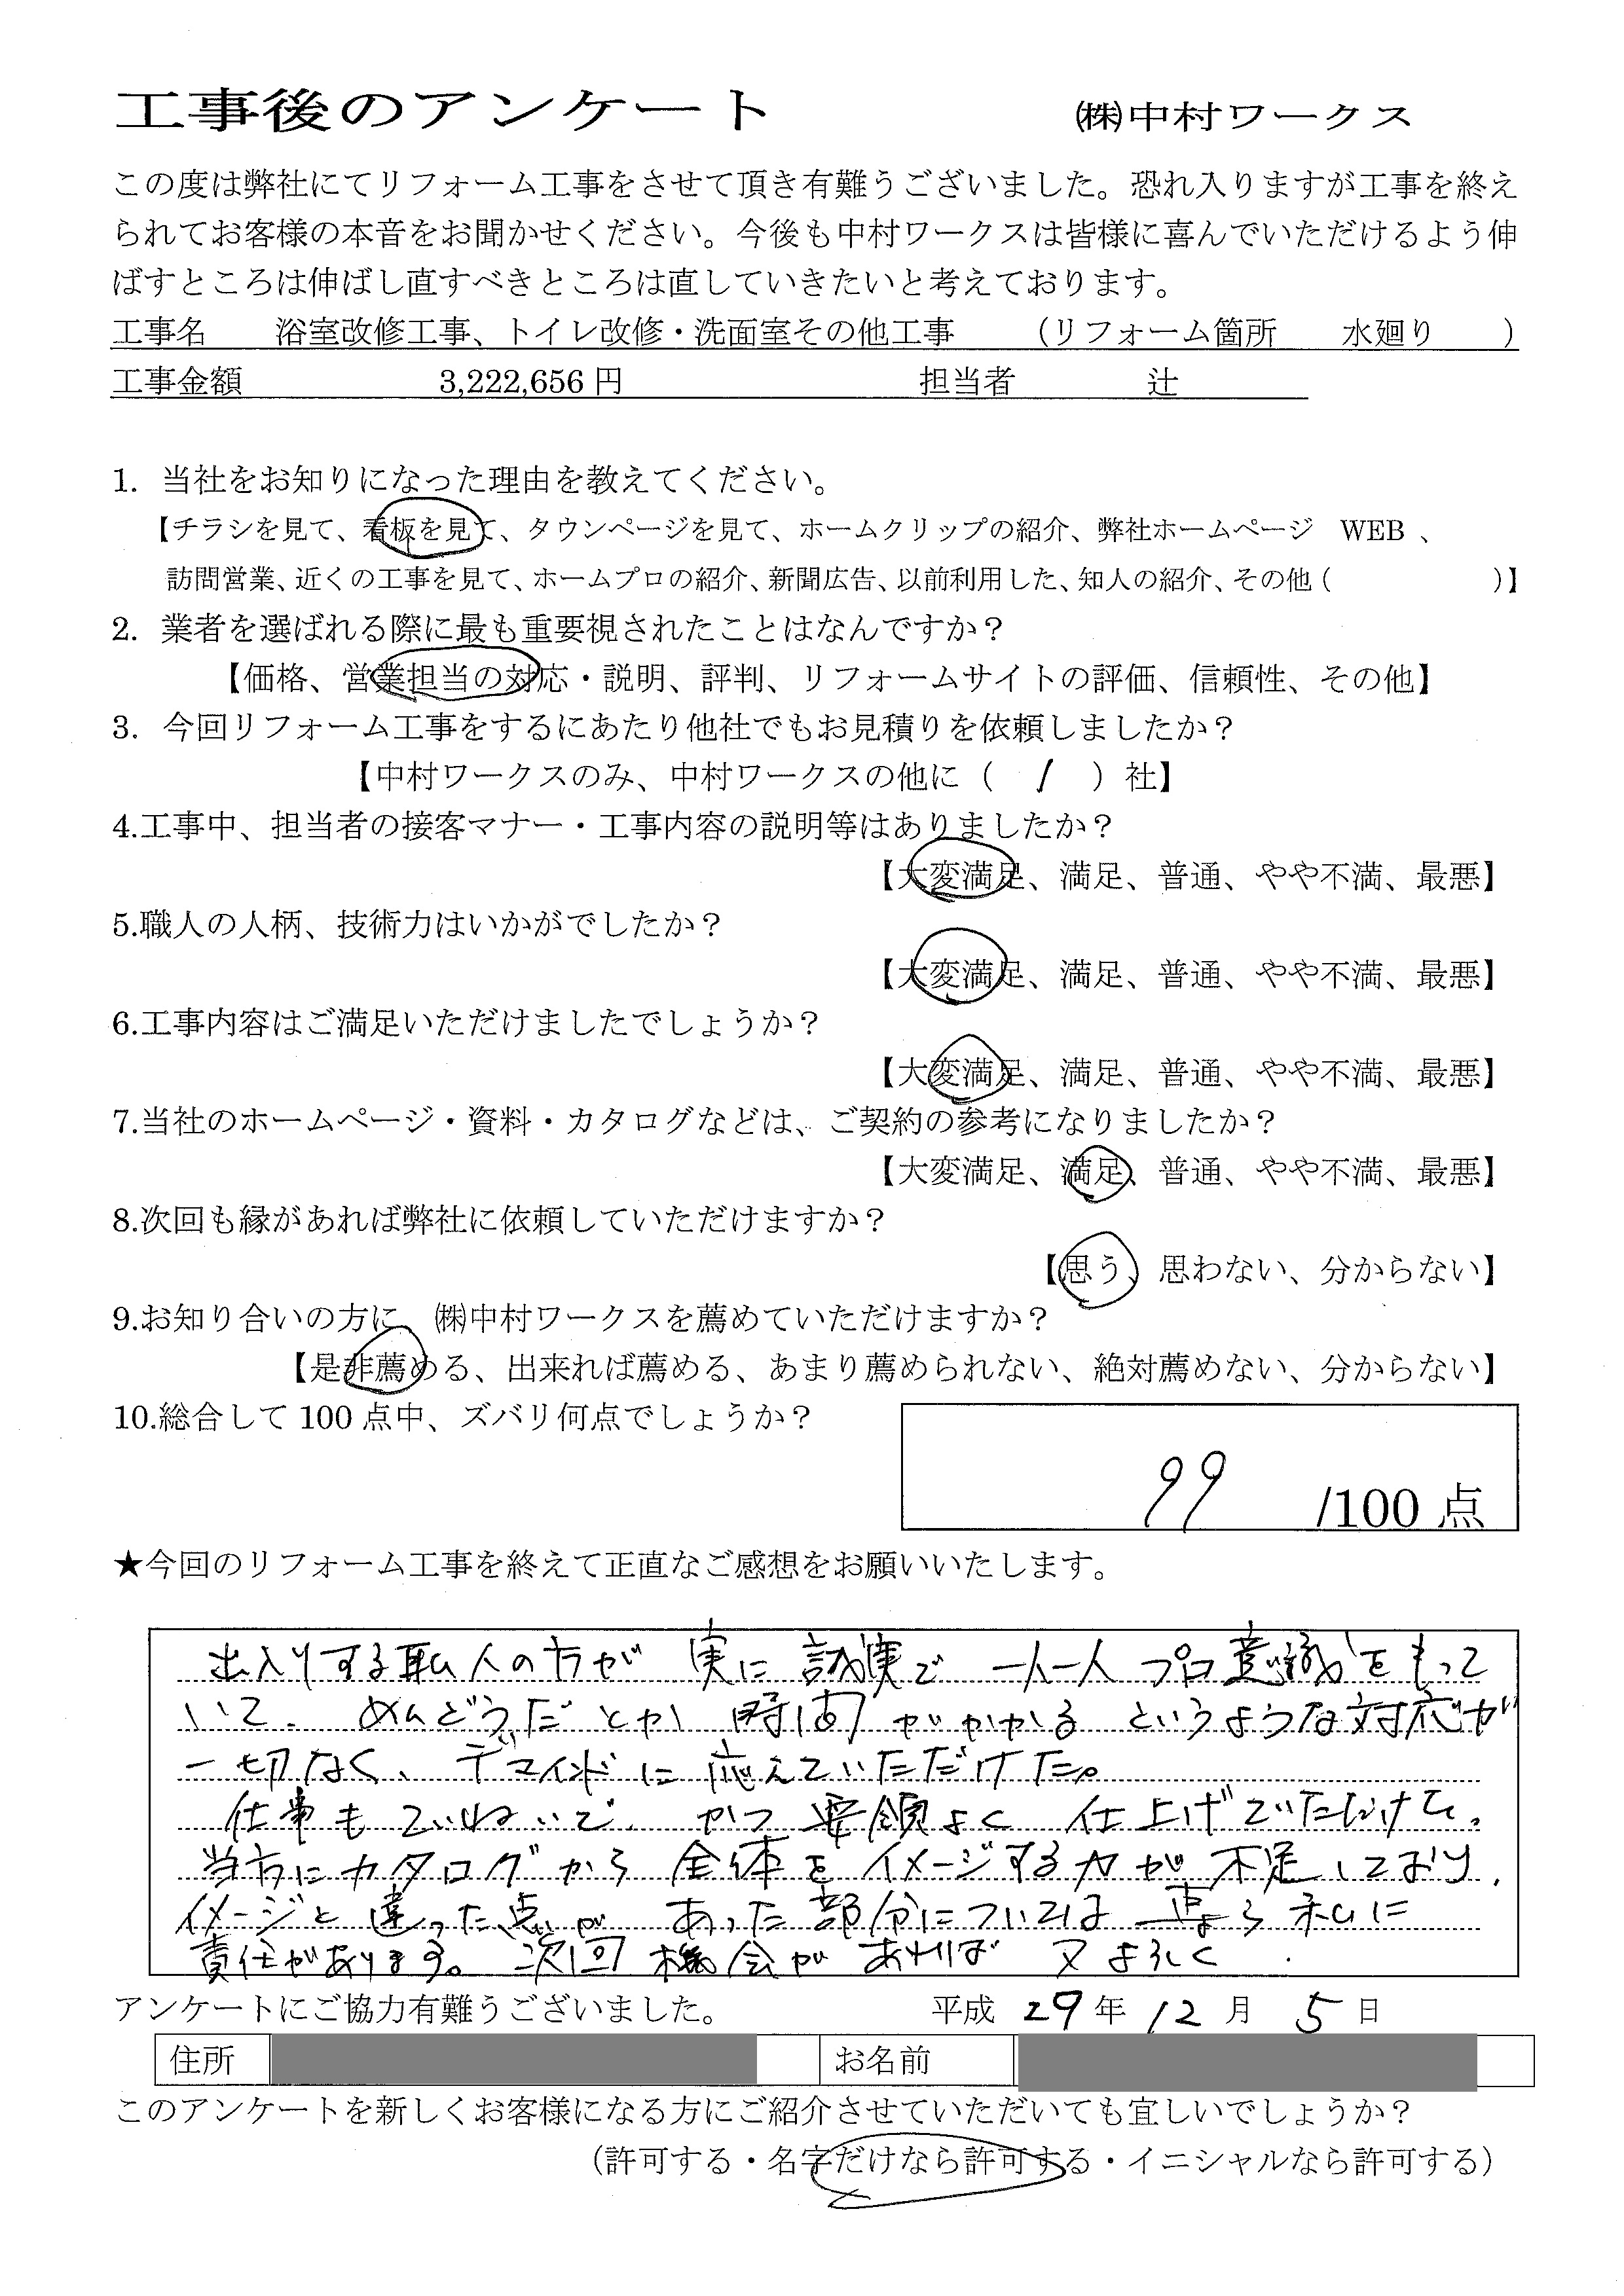 工事後のアンケート ㈱中村ワークス
この度は弊社にてリフォーム工事をさせて頂き有難うございました。恐れ入りますが工事を終え
られてお客様の本音をお聞かせください。今後も中村ワークスは皆様に喜んでいただけるよう伸
ばすところは伸ばし直すべきところは直していきたいと考えております。
工事名 浴室改修工事、トイレ改修・洗面室その他工事 (リフォーム箇所 水廻り )
工事金額 3,222,656 円 担当者 辻
1. 当社をお知りになった理由を教えてください。
【チラシを見て、看板を見て、タウンページを見て、ホームクリップの紹介、弊社ホームページ WEB 、
訪問営業、近くの工事を見て、ホームプロの紹介、新聞広告、以前利用した、知人の紹介、その他 ( )】
2. 業者を選ばれる際に最も重要視されたことはなんですか？
【価格、営業担当の対応・説明、評判、リフォームサイトの評価、信頼性、その他】
3. 今回リフォーム工事をするにあたり他社でもお見積りを依頼しましたか？
【中村ワークスのみ、中村ワークスの他に ( 1 ) 社】
4.工事中、担当者の接客マナー・工事内容の説明等はありましたか？
【大変満足、満足、普通、やや不満、最悪】
5.職人の人柄、技術力はいかがでしたか？
【大変満足、満足、普通、やや不満、最悪】
6.工事内容はご満足いただけましたでしょうか？
【大変満足、満足、普通、やや不満、最悪】
7.当社のホームページ・資料・カタログなどは、ご契約の参考になりましたか？
【大変満足、満足、普通、やや不満、最悪】
8.次回も縁があれば弊社に依頼していただけますか？
【思う、思わない、分からない】
9.お知り合いの方に、㈱中村ワークスを薦めていただけますか？
【是非薦める、出来れば薦める、あまり薦められない、絶対薦めない、分からない】
10.総合して 100 点中、ズバリ何点でしょうか？
99 /100 点
★今回のリフォーム工事を終えて正直なご感想をお願いいたします。
出入りする職人の方が 実に 誠実で 一人一人 プロ意識をもって
いて、めんどうだ とか 時間 がかかる というような対応が
一切なく、デマインドに 応えていただけた。
仕事も ていねいで、かつ 要領よく 仕上げていただけて、
当方にカタログから 全体を イメージする力が 不足しており、
イメージと 違った点が あった部分については 専ら 私に
責任があります。次回 機会が あれば 又よろしく.
アンケートにご協力有難うございました。 平成 29 年 12 月 5 日
住所 お名前
このアンケートを新しくお客様になる方にご紹介させていただいても宜しいでしょうか？
(許可する・名字だけなら許可する・イニシャルなら許可する)